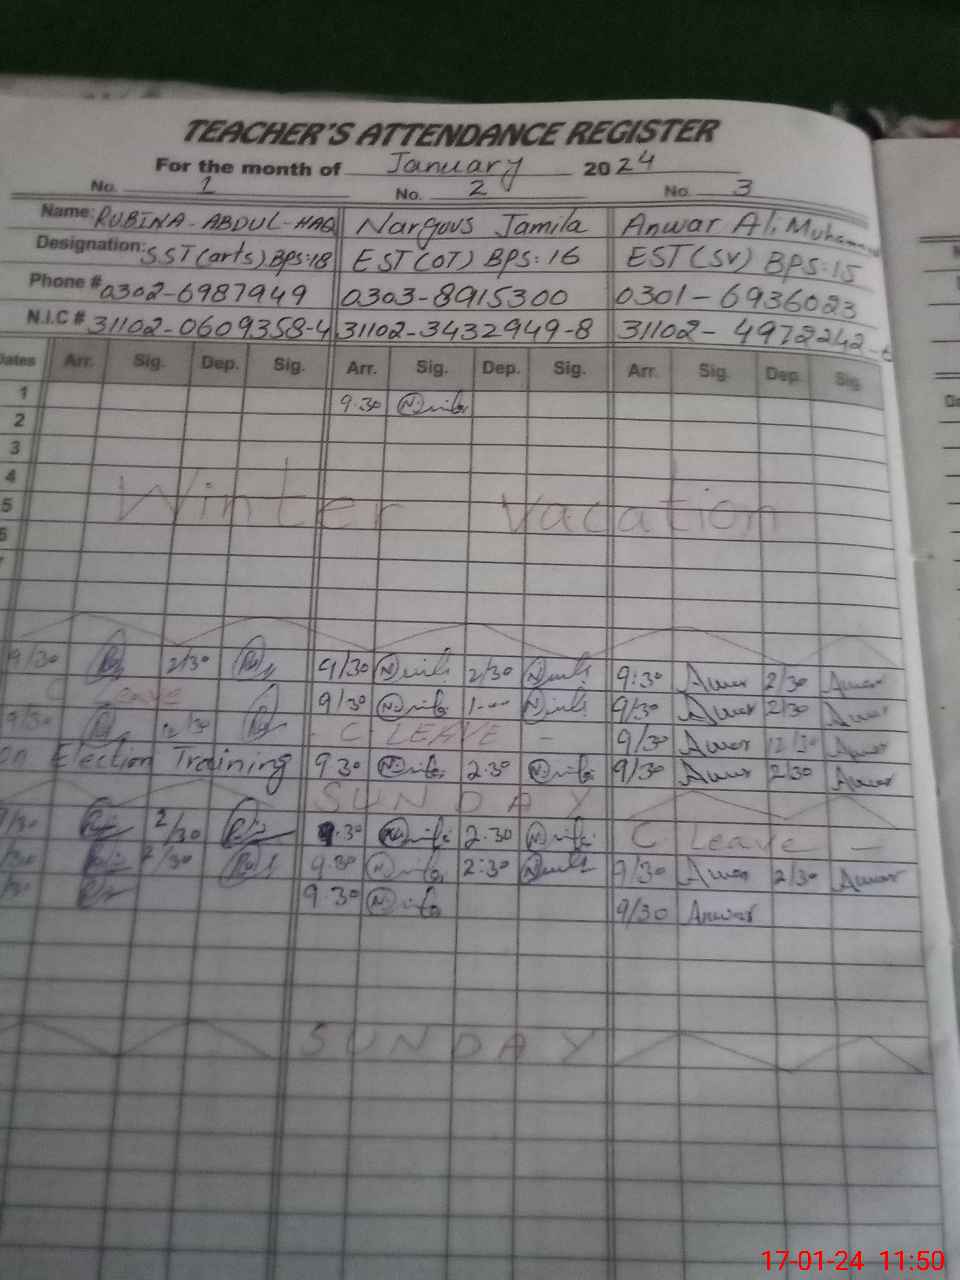 TEACHER'S ATTENDANCE REGISTER
For the month of January 2024
No. 1 No. 2 No. 3
Name: RUBINA-ABDUL-HAQ Nargous Jamila Anwar Ali Muhammad
Designation: SST(arts) BPS:18 EST(OT) BPS:16 EST(SV) BPS:15
Phone # 0302-6987949 0303-8915300 0301-6936023
N.I.C # 31102-0609358-4 31102-3432949-8 31102-4972242-
Dates Arr. Sig. Dep. Sig. Arr. Sig. Dep. Sig. Arr. Sig. Dep. Sig.
1 9.30
2
3
4
5 Winter Vacation
6
9/30 2/30 9/30 2/30 9:30 Anwar 2/30 Anwar
C Leave 9/30 1-00 9/30 Anwar 2/30 Anwar
9/30 12/30 C LEAVE - 9/30 Anwar 12/30 Anwar
on Election Training 9 30 2:30 9/30 Anwar 2/30 Anwar
SUNDAY
2/30 9.30 2.30 C Leave -
2/30 9.30 2:30 9/30 Anwar 2/30 Anwar
9.30 9/30 Anwar
SUNDAY
17-01-24 11:50